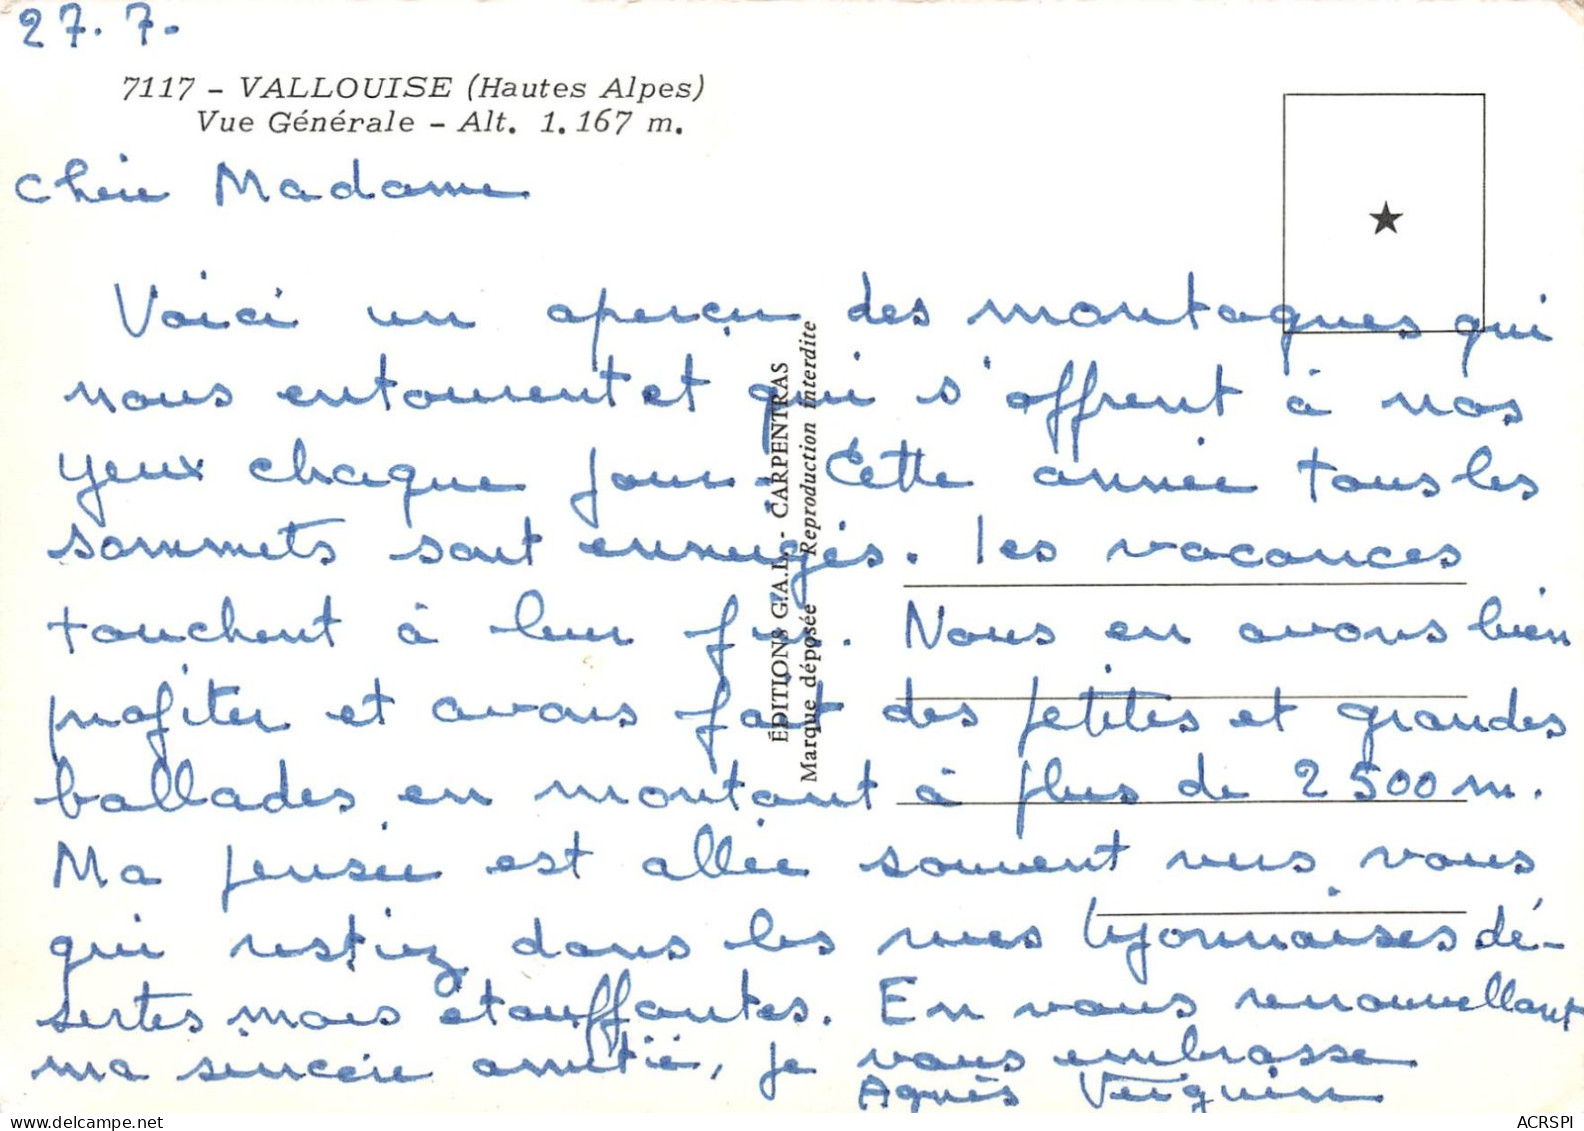 27.7.
7117 - VALLOUISE (Hautes Alpes)
Vue Générale - Alt. 1.167 m.
Chère Madame
Voici un aperçu des montagnes qui
nous entourent et qui s'offrent à nos
yeux chaque jour. Cette année tous les
sommets sont enneigés. les vacances
touchent à leur fin. Nous en avons bien
profiter et avons fait des petites et grandes
ballades en montant à plus de 2500 m.
Ma pensée est allée souvent vers vous
qui restiez dans les rues lyonnaises dé-
sertes mais étouffantes. En vous renouvellant
ma sincère amitié, je vous embrasse
Agnès
ÉDITIONS G.A.L. - CARPENTRAS
Marque déposée Reproduction interdite
ACRSPI